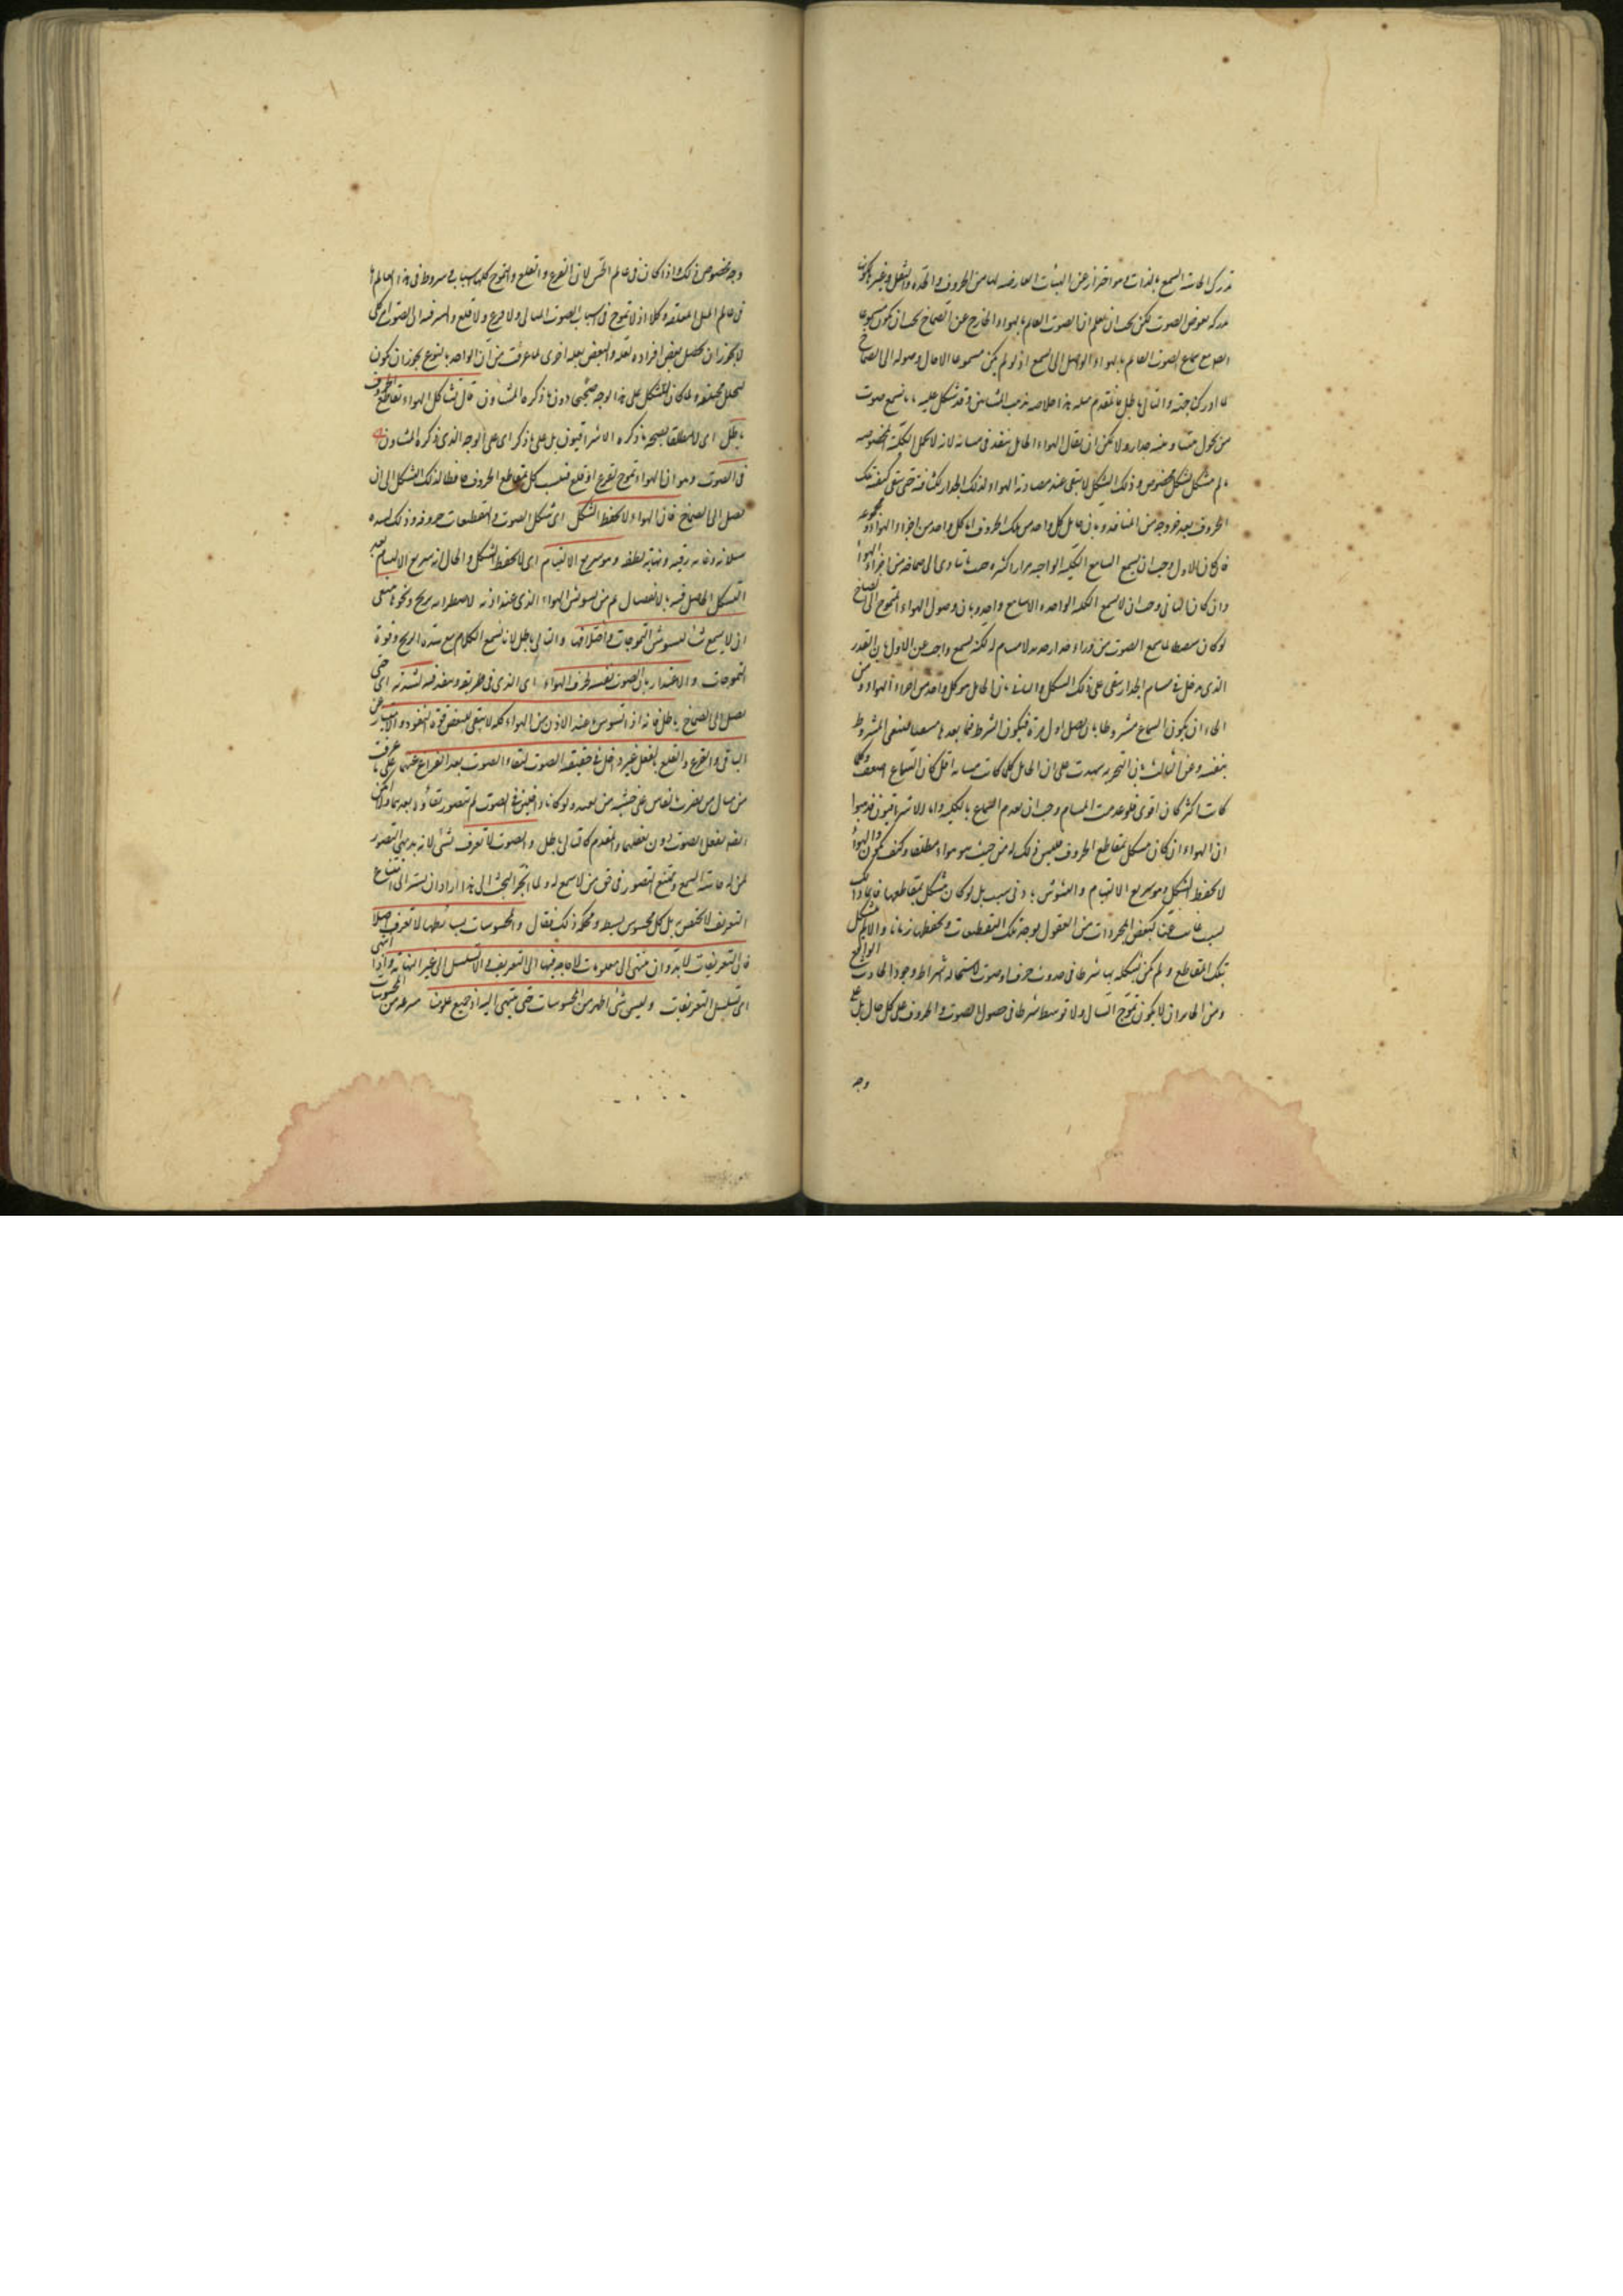 تدركه الحاسة السمع بالذات وهو احتراز عن الهيئات العارضة لها من الحروف والحدة والثقل وغيرها لكون
مدركه بعرض الصوت لكن يجب ان يعلم ان الصوت القائم بالهواء الخارج عن الصماخ يجب ان يكون مسموعا
مع سماع الصوت القائم بالهواء الواصل الى السمع اذ لو لم يكن مسموعا الا حال وصوله الى الصماخ
لما ادرك جهته والتالى باطل فالمقدم مثله هذا خلاصة مذهب المشائين وقد شكل عليه بانا نسمع صوت
من يحول بيننا وبينه جدار ولا يمكن ان يقال الهواء الحامل ينفذ فى مسامه لانه لا يحمل الكلمة المخصوصة
ما لم يتشكل بشكل مخصوص وذلك الشكل لا يبقى عند مصادمة الهواء لذلك الجدار لكثافته حتى يبقى كيفية تلك
الحروف بعد خروجه من المنافذ وبان حامل كل واحد من تلك الحروف اما كل واحد من اجزاء الهواء او مجموعه
فان كان الاول وجب ان يسمع السامع الكلمة الواحدة مرارا كثيرة حيث يتادى الى صماخه من اجزاء الهواء
وان كان الثانى وجب ان لا يسمع الكلمة الواحدة الا سامع واحد وبان وصول الهواء المتموج الى الصماخ
لو كان شرطا لما سمع الصوت من وراء جدار حديد لا مسام له لكنه يسمع واجيب عن الاول بان القدر
الذى يدخل فى مسام الجدار يبقى على ذلك الشكل والثانى بان الحامل هو كل واحد من اجزاء الهواء ومن
الجائز ان يكون السماع مشروطا بان يصل اول مرة فيكون الشرط فيما بعدها منتفيا فينتفى المشروط
بنفيه وعن الثالث بان التجربة شهدت على ان الحائل كلما كانت مسامه اقل كان السماع اضعف وكلما
كانت اكثر كان اقوى فلو عدمت المسام وجب ان يعدم السماع بالكلية واما الاشراقيون فذهبوا
ان الهواء ان كان متشكلا بمقاطع الحروف فليس ذلك له من حيث هو هواء مطلقا وكيف يكون والهواء
لا يحفظ الشكل وهو سريع الالتيام والتشوش بادنى سبب بل لو كان متشكلا بمقاطعها فانما ذلك
بسبب غائب عنا كبعض المجردات من العقول يوجد تلك التقطيعات ويحفظها زمانا والا لم يتشكل
بتلك المقاطع ولم يكن تشكله بها شرطا فى حدوث حرف او صوت لاستحالة اشتراط وجود الحادث الواقع
ومن الجائز ان لا يكون تموج السيال ولا توسطه شرطا فى حصول الصوت والحروف على كل حال بل على
وجه
وجه مخصوص ذلك واذا كان فى عالم الحس لان القرع والقلع والتموج كلها اسباب مشروط فى هذا العالم اما
فى عالم المثل المعلقة فلا اذ لا تموج فى اسباب الصوت المثالى ولا قرع ولا قلع
لا يجوز ان يحصل بعض افراده بعلة والبعض بعلة اخرى لما عرفت من ان الواحد بالنوع يجوز ان يكون
لعلل مختلفة ولما كان التشكل على هذا الوجه صحيحا دون ما ذكره المشاؤن قال تشاكل الهواء بمقاطع الحروف
باطل اى لا مطلقا لصحة ما ذكره الاشراقيون بل على ما ذكر اى على الوجه الذى ذكره المشاؤن
فى الصوت وهو ان الهواء يتموج بقرع او قلع فيتشكل بمقاطع الحروف حافظا لذلك الشكل الى ان
يصل الى الصماخ فان الهواء لا يحفظ الشكل اى شكل الصوت والتقطيعات حروفه وذلك لشدة
سيلانه وغاية رقته ونهاية لطفه وهو سريع الالتيام اى لا يحفظ الشكل والحال انه سريع الالتيام بعد
التشكل الحاصل فيه بالانفصال ثم من تشوش الهواء الذى عند اذنه لاضطرابه بريح ونحوها ينبغى
ان لا يسمع شيئا لتشوش التموجات واختلافها والتالى باطل لانا نسمع الكلام مع شدة الريح وقوة
التموجات والاعتذار بان الصوت نفسه يخرق الهواء اى الذى فى طريقه وينفذ فيه لشدته اى حتى
يصل الى الصماخ باطل فانه اذا تشوش ما عند الاذن من الهواء كله لا يبقى لبعض قوة النفوذ والامتياز عن
الباقى والقرع والقلع بالفعل غير داخل فى حقيقة الصوت لبقاء الصوت بعد الفراغ عنهما على ما عرفت
من مثال من يضرب الفاس على خشبة من بعيد ولو كانا داخلين فى الصوت لم يتصور بقاؤه بعدهما ولا يمكن
ايضا تعقل الصوت دون تعقلهما والمقدم كالتالى باطل والصوت لا يعرف بشئ لانه بديهى التصور
لمن له حاسة السمع وممتنع التصور فى حق من لا سمع له ولما انجر البحث الى هذا اراد ان يشير الى ان امتناع
التعريف لا يختص به بل كل محسوس بسيط حكمه ذلك فقال والمحسوسات بسائطها لا تعرف اصلا
فان التعريفات لا بد وان تنتهى الى معلومات لا حاجة فيها الى التعريف والا لتسلسل الى غير النهاية واذا انتهى
اى تسلسل التعريفات وليس شئ اظهر من المحسوسات حتى ينتهى اليه اذ جميع علومنا منتزعة من المحسوسات